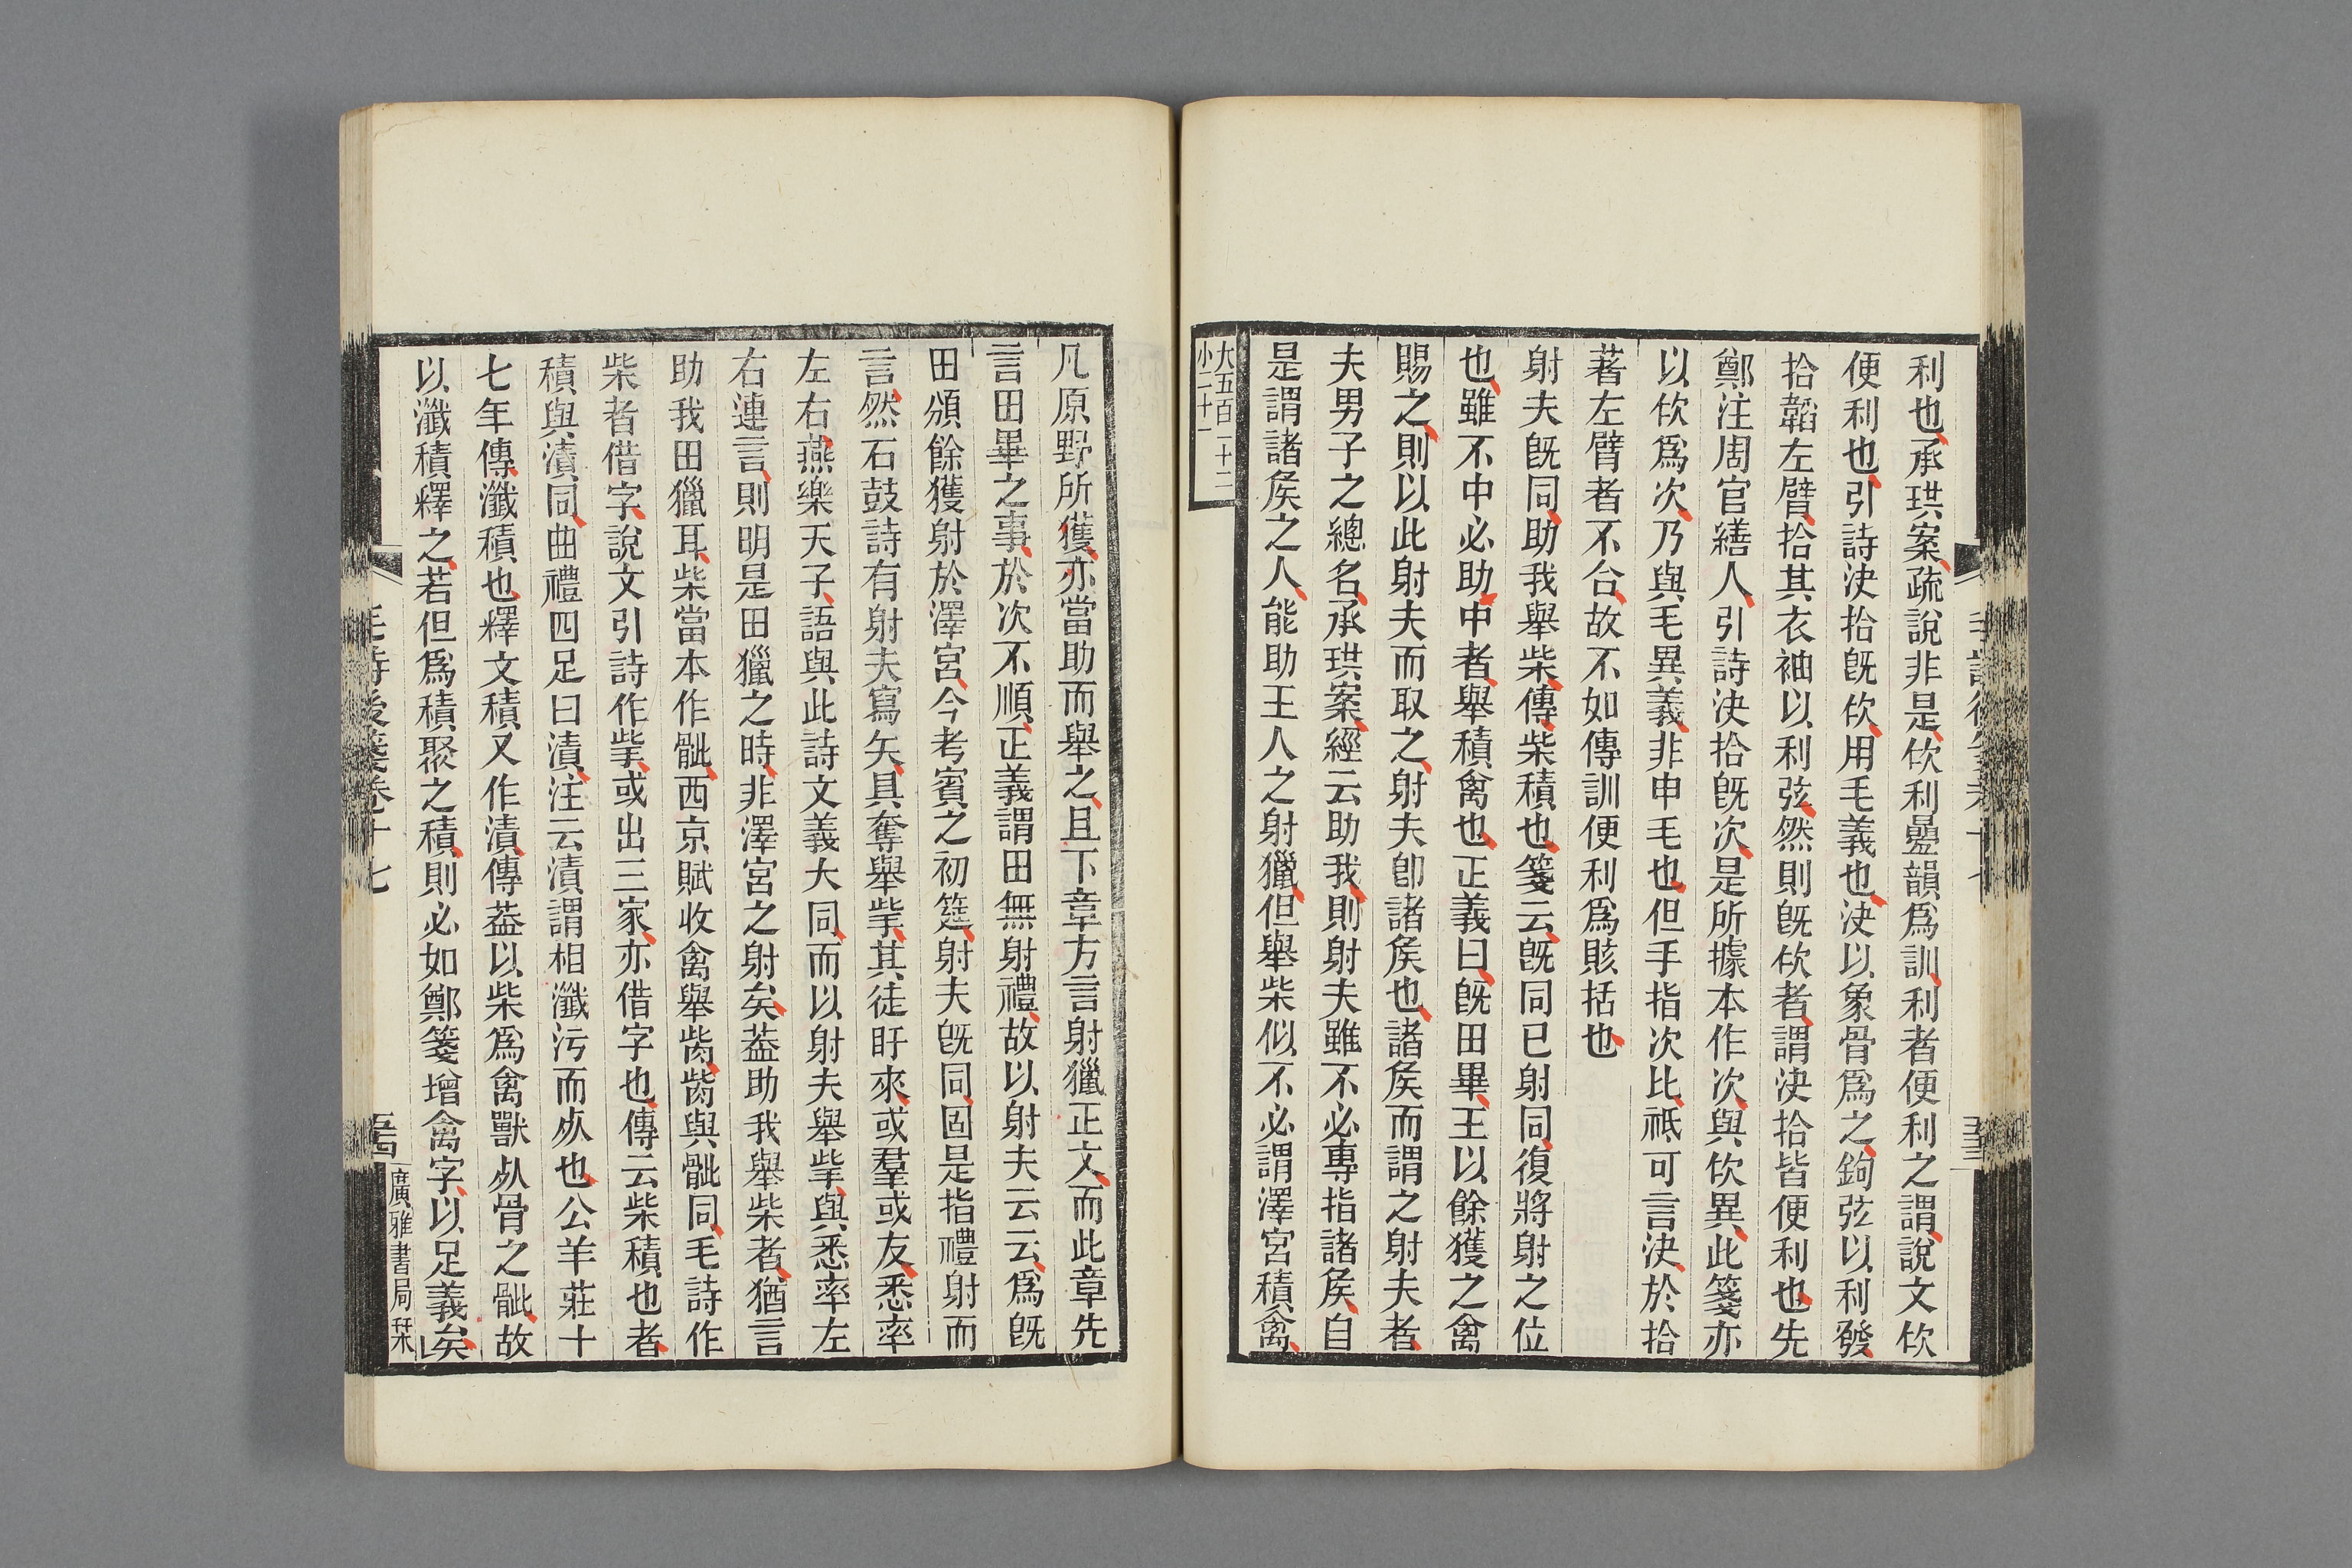 利也承珙案疏說非是佽利疊韻爲訓利者便利之謂說文佽
便利也引詩決拾旣佽用毛義也決以象骨爲之鉤弦以利發
拾韜左臂拾其衣袖以利弦然則旣佽者謂決拾皆便利也先
鄭注周官繕人引詩決拾旣次是所據本作次與佽異此箋亦
以佽爲次乃與毛異義非申毛也但手指次比祗可言決於拾
著左臂者不合故不如傳訓便利爲賅括也
射夫旣同助我舉柴傳柴積也箋云旣同已射同復將射之位
也雖不中必助中者舉積禽也正義曰旣田畢王以餘獲之禽
賜之則以此射夫而取之射夫卽諸矦也諸矦而謂之射夫者
夫男子之總名承珙案經云助我則射夫雖不必專指諸矦自
是謂諸矦之人能助王人之射獵但舉柴似不必謂澤宮積禽
大五百一十二
小二十一
凡原野所獲亦當助而舉之且下章方言射獵正文而此章先
言田畢之事於次不順正義謂田無射禮故以射夫云云爲旣
田頒餘獲射於澤宮今考賓之初筵射夫旣同固是指禮射而
言然石鼓詩有射夫寫矢具奪舉㧘其徒盱來或羣或友悉率
左右燕樂天子語與此詩文義大同而以射夫舉㧘與悉率左
右連言則明是田獵之時非澤宮之射矣葢助我舉柴者猶言
助我田獵耳柴當本作骴西京賦收禽舉胔胔與骴同毛詩作
柴者借字說文引詩作㧘或出三家亦借字也傳云柴積也者
積與漬同曲禮四足曰漬注云漬謂相瀸污而死也公羊莊十
七年傳瀸積也釋文積又作漬傳葢以柴爲禽獸死骨之骴故
以瀸積釋之若但爲積聚之積則必如鄭箋增禽字以足義矣
毛詩後箋卷十七
廣雅書局栞